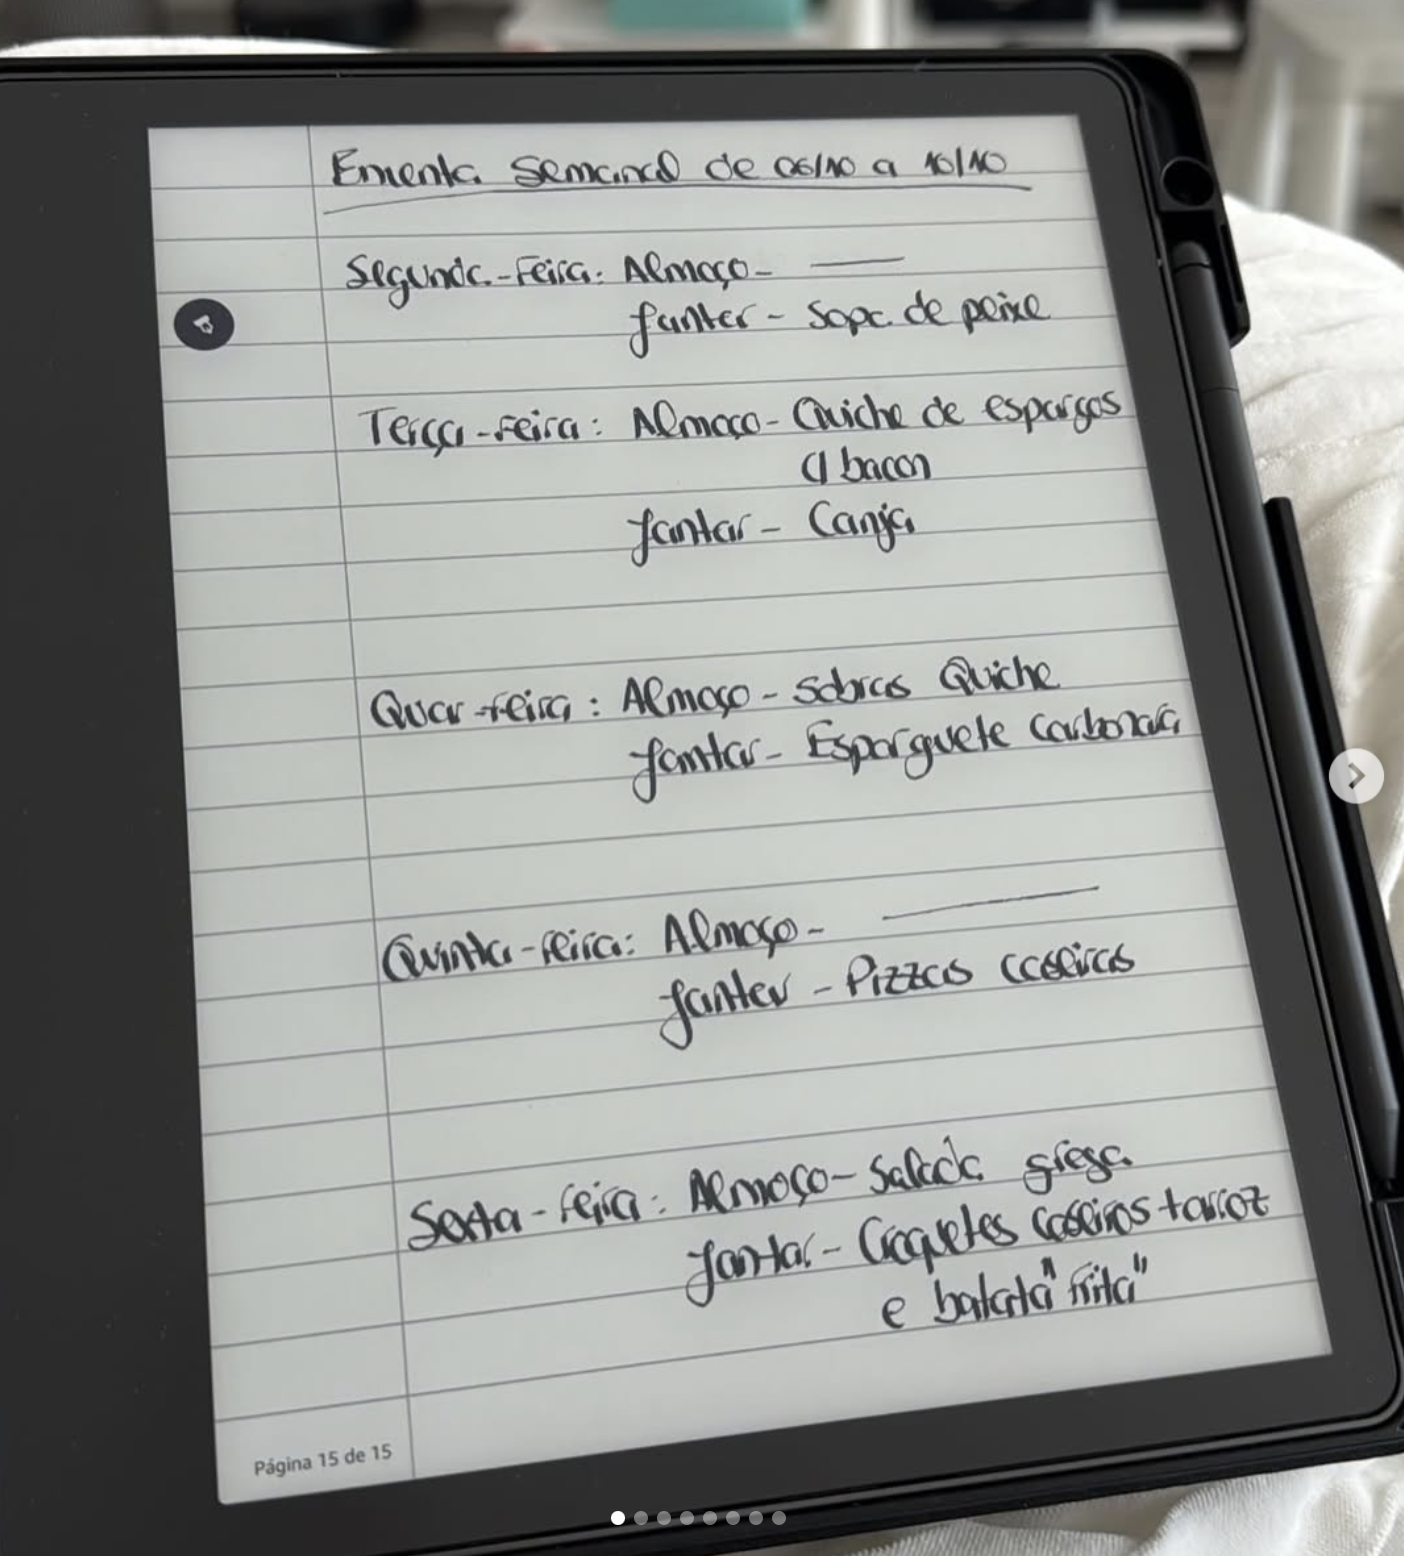 Ementa Semanal de 06/10 a 10/10
Segunda-Feira: Almoço- ——
Jantar - Sopa de peixe
Terça-Feira: Almoço- Quiche de espargos
c/ bacon
Jantar - Canja
Quar-feira: Almoço - Sobras Quiche
Jantar - Esparguete carbonara
Quinta-feira: Almoço - ——
Jantar - Pizzas caseiras
Sexta-feira: Almoço- Salada grega
Jantar - Croquetes caseiros + arroz
e batata "frita"
Página 15 de 15